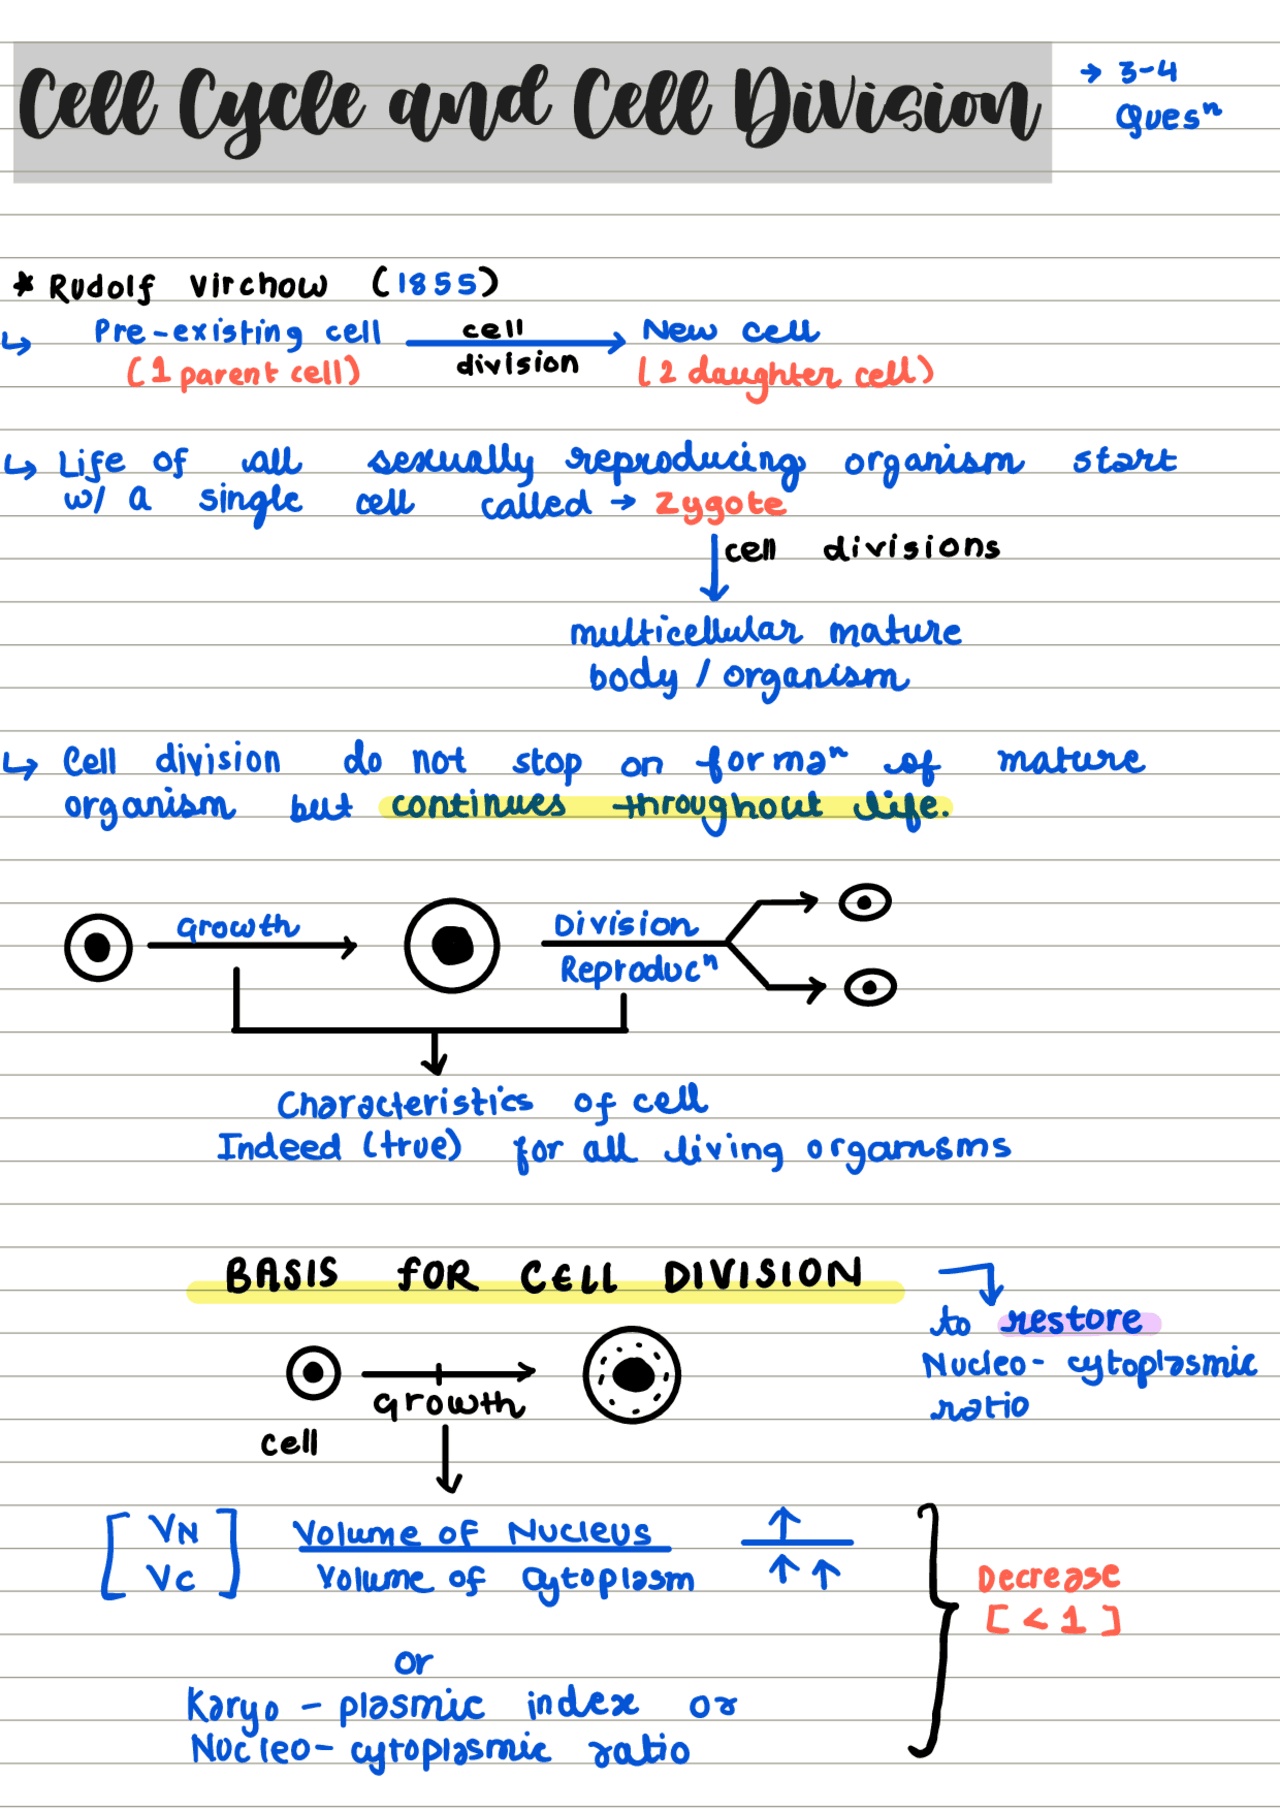 Cell Cycle and Cell Division → 3-4
Quesⁿ
* Rudolf Virchow (1855)
↳ Pre-existing cell cell division → New cell
(1 parent cell) (2 daughter cell)
↳ Life of all sexually reproducing organism start
w/ a single cell called → Zygote
↓ cell divisions
multicellular mature
body / organism
↳ Cell division do not stop on formaⁿ of mature
organism but continues throughout life.
Growth Division
Reproducⁿ
Characteristics of cell
Indeed (true) for all living organisms
BASIS FOR CELL DIVISION
to restore
Nucleo- cytoplasmic
ratio
growth
cell
[VN Volume of Nucleus ↑
VC] Volume of Cytoplasm ↑↑
Decrease
[ < 1 ]
or
Karyo - plasmic index or
Nucleo- cytoplasmic ratio